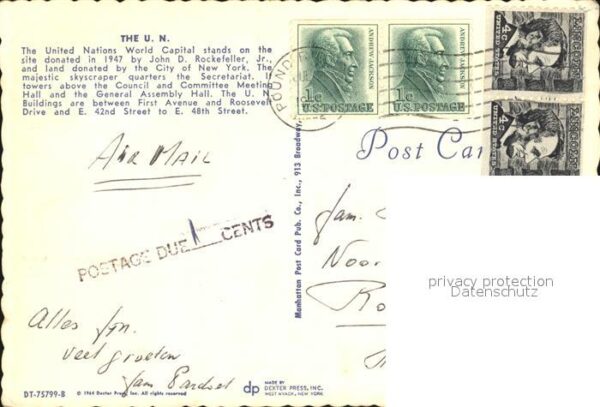 THE U. N.
The United Nations World Capital stands on the
site donated in 1947 by John D. Rockefeller, Jr.,
and land donated by the City of New York. The
majestic skyscraper quarters the Secretariat. It
towers above the Council and Committee Meeting
Hall and the General Assembly Hall. The U. N.
Buildings are between First Avenue and Roosevelt
Drive and E. 42nd Street to E. 48th Street.
ANDREW JACKSON
1c
U.S. POSTAGE
ANDREW JACKSON
1c
U.S. POSTAGE
4c
UNITED STATES
4c
UNITED STATES
POUND
AIR MAIL
Post Car
POSTAGE DUE CENTS
Manhattan Post Card Pub. Co., Inc., 913 Broadway,
Fam.
Noor
Ro
privacy protection
Datenschutz
Alles fijn.
veel groeten
DT-75799-B
© 1964 Dexter Press, Inc. All rights reserved
dp
MADE BY
DEXTER PRESS, INC.
WEST NYACK, NEW YORK